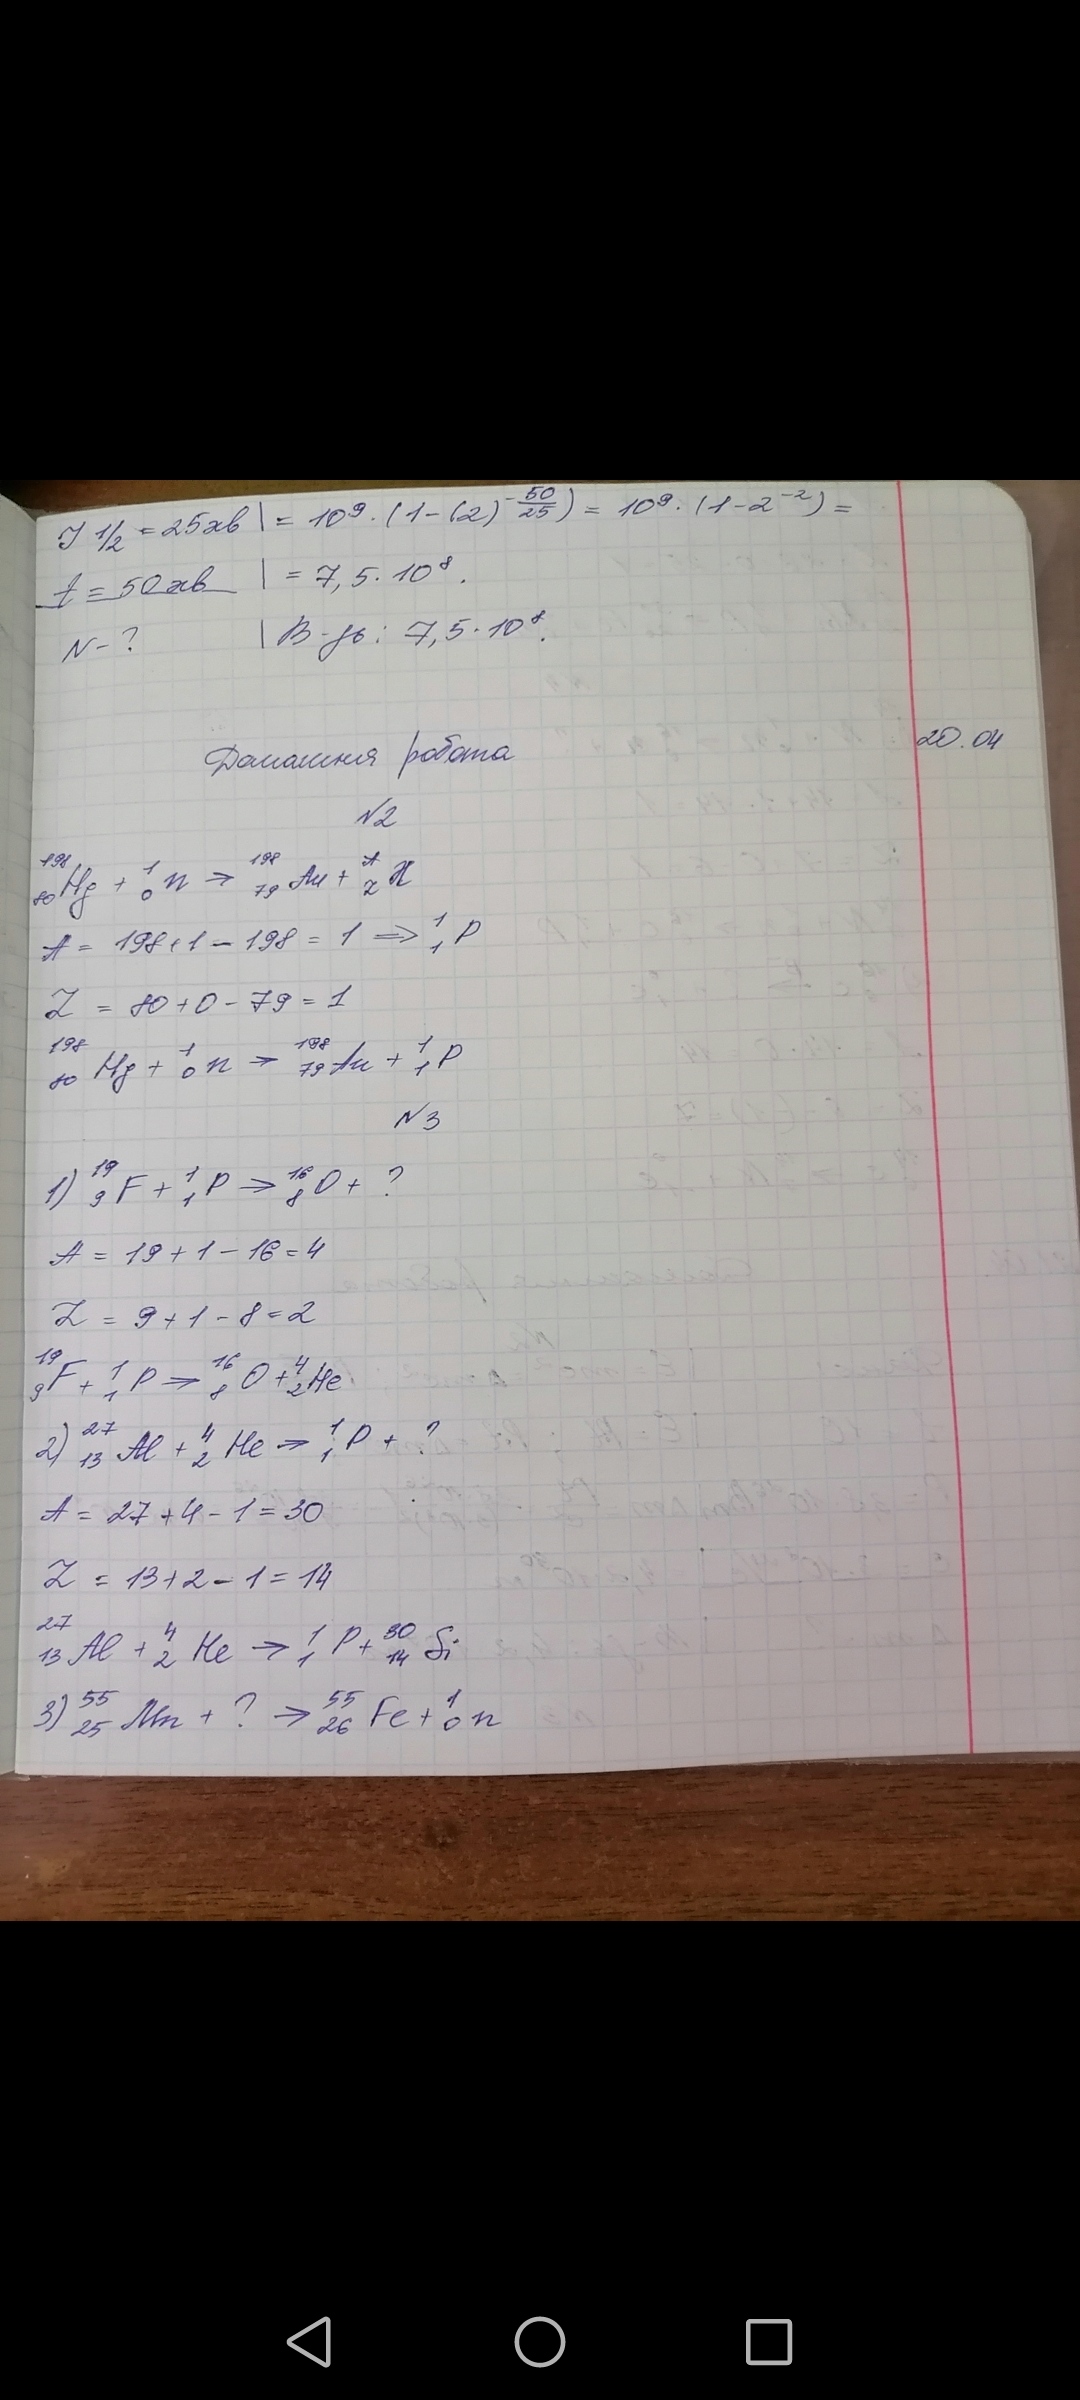 T 1/2 = 25хв | = 10⁹ · (1 - (2)^(-50/25)) = 10⁹ · (1 - 2⁻²) =
t = 50хв | = 7,5 · 10⁸.
N - ? | В-дь: 7,5 · 10⁸.
Домашня робота 20.04
№2
¹⁹⁸₈₀Hg + ¹₀n → ¹⁹⁸₇₉Au + ᴬ_Z X
A = 198 + 1 - 198 = 1 ⇒ ¹₁P
Z = 80 + 0 - 79 = 1
¹⁹⁸₈₀Hg + ¹₀n → ¹⁹⁸₇₉Au + ¹₁P
№3
1) ¹⁹₉F + ¹₁P → ¹⁶₈O + ?
A = 19 + 1 - 16 = 4
Z = 9 + 1 - 8 = 2
¹⁹₉F + ¹₁P → ¹⁶₈O + ⁴₂He
2) ²⁷₁₃Al + ⁴₂He → ¹₁P + ?
A = 27 + 4 - 1 = 30
Z = 13 + 2 - 1 = 14
²⁷₁₃Al + ⁴₂He → ¹₁P + ³⁰₁₄Si
3) ⁵⁵₂₅Mn + ? → ⁵⁵₂₆Fe + ¹₀n